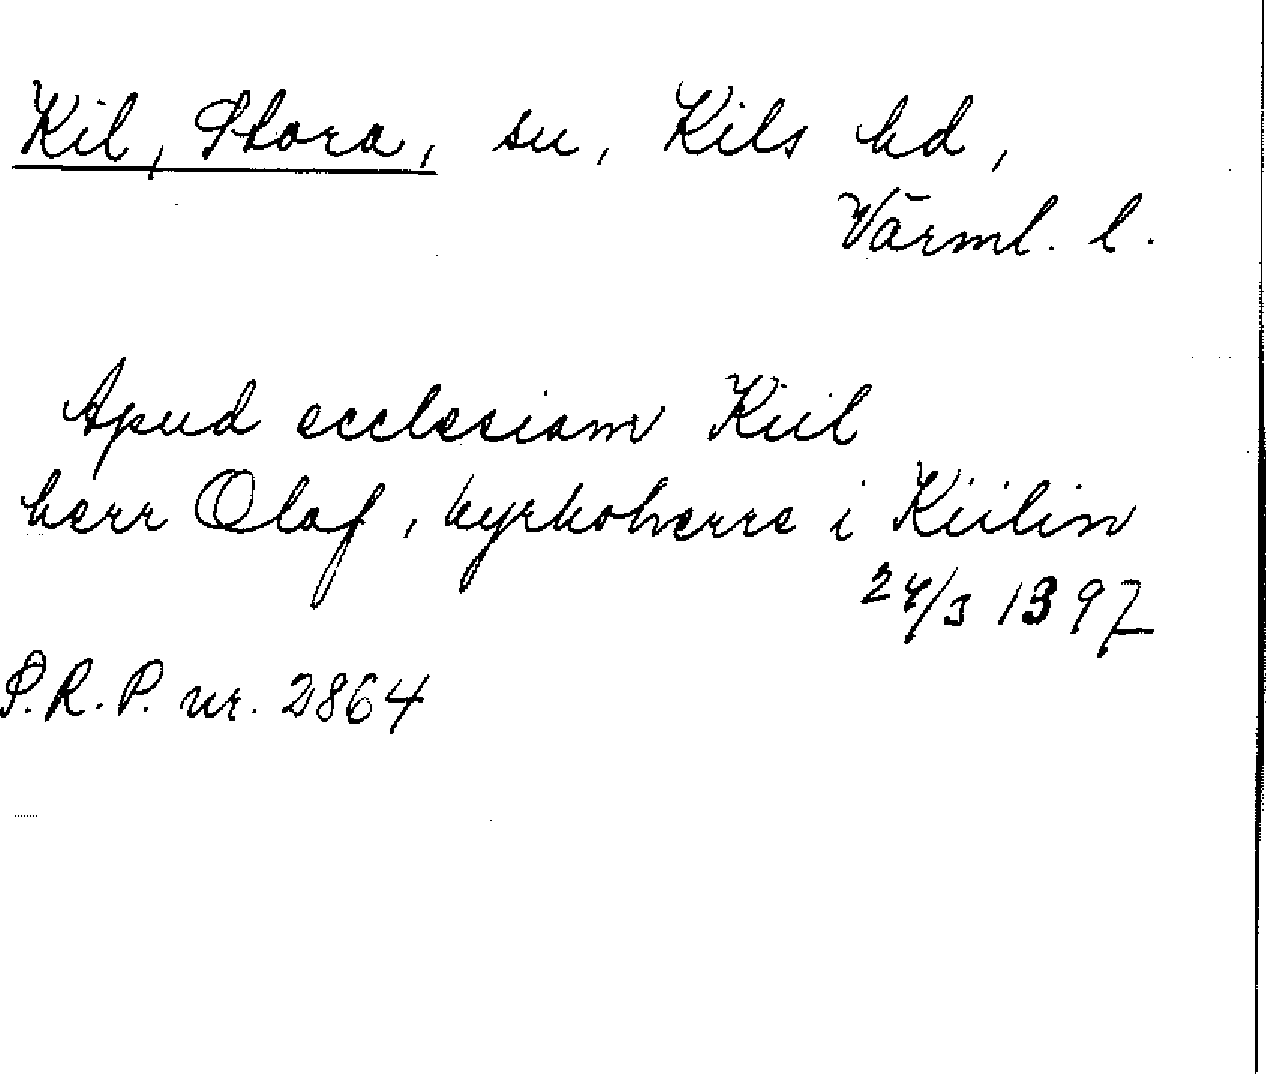 Kil, Stora, sn, Kils hd,
Värml. l.
Apud ecclesiam Kiil
herr Olaf, kyrkoherre i Kiilin
24/3 1397
S.R.P. nr. 2864